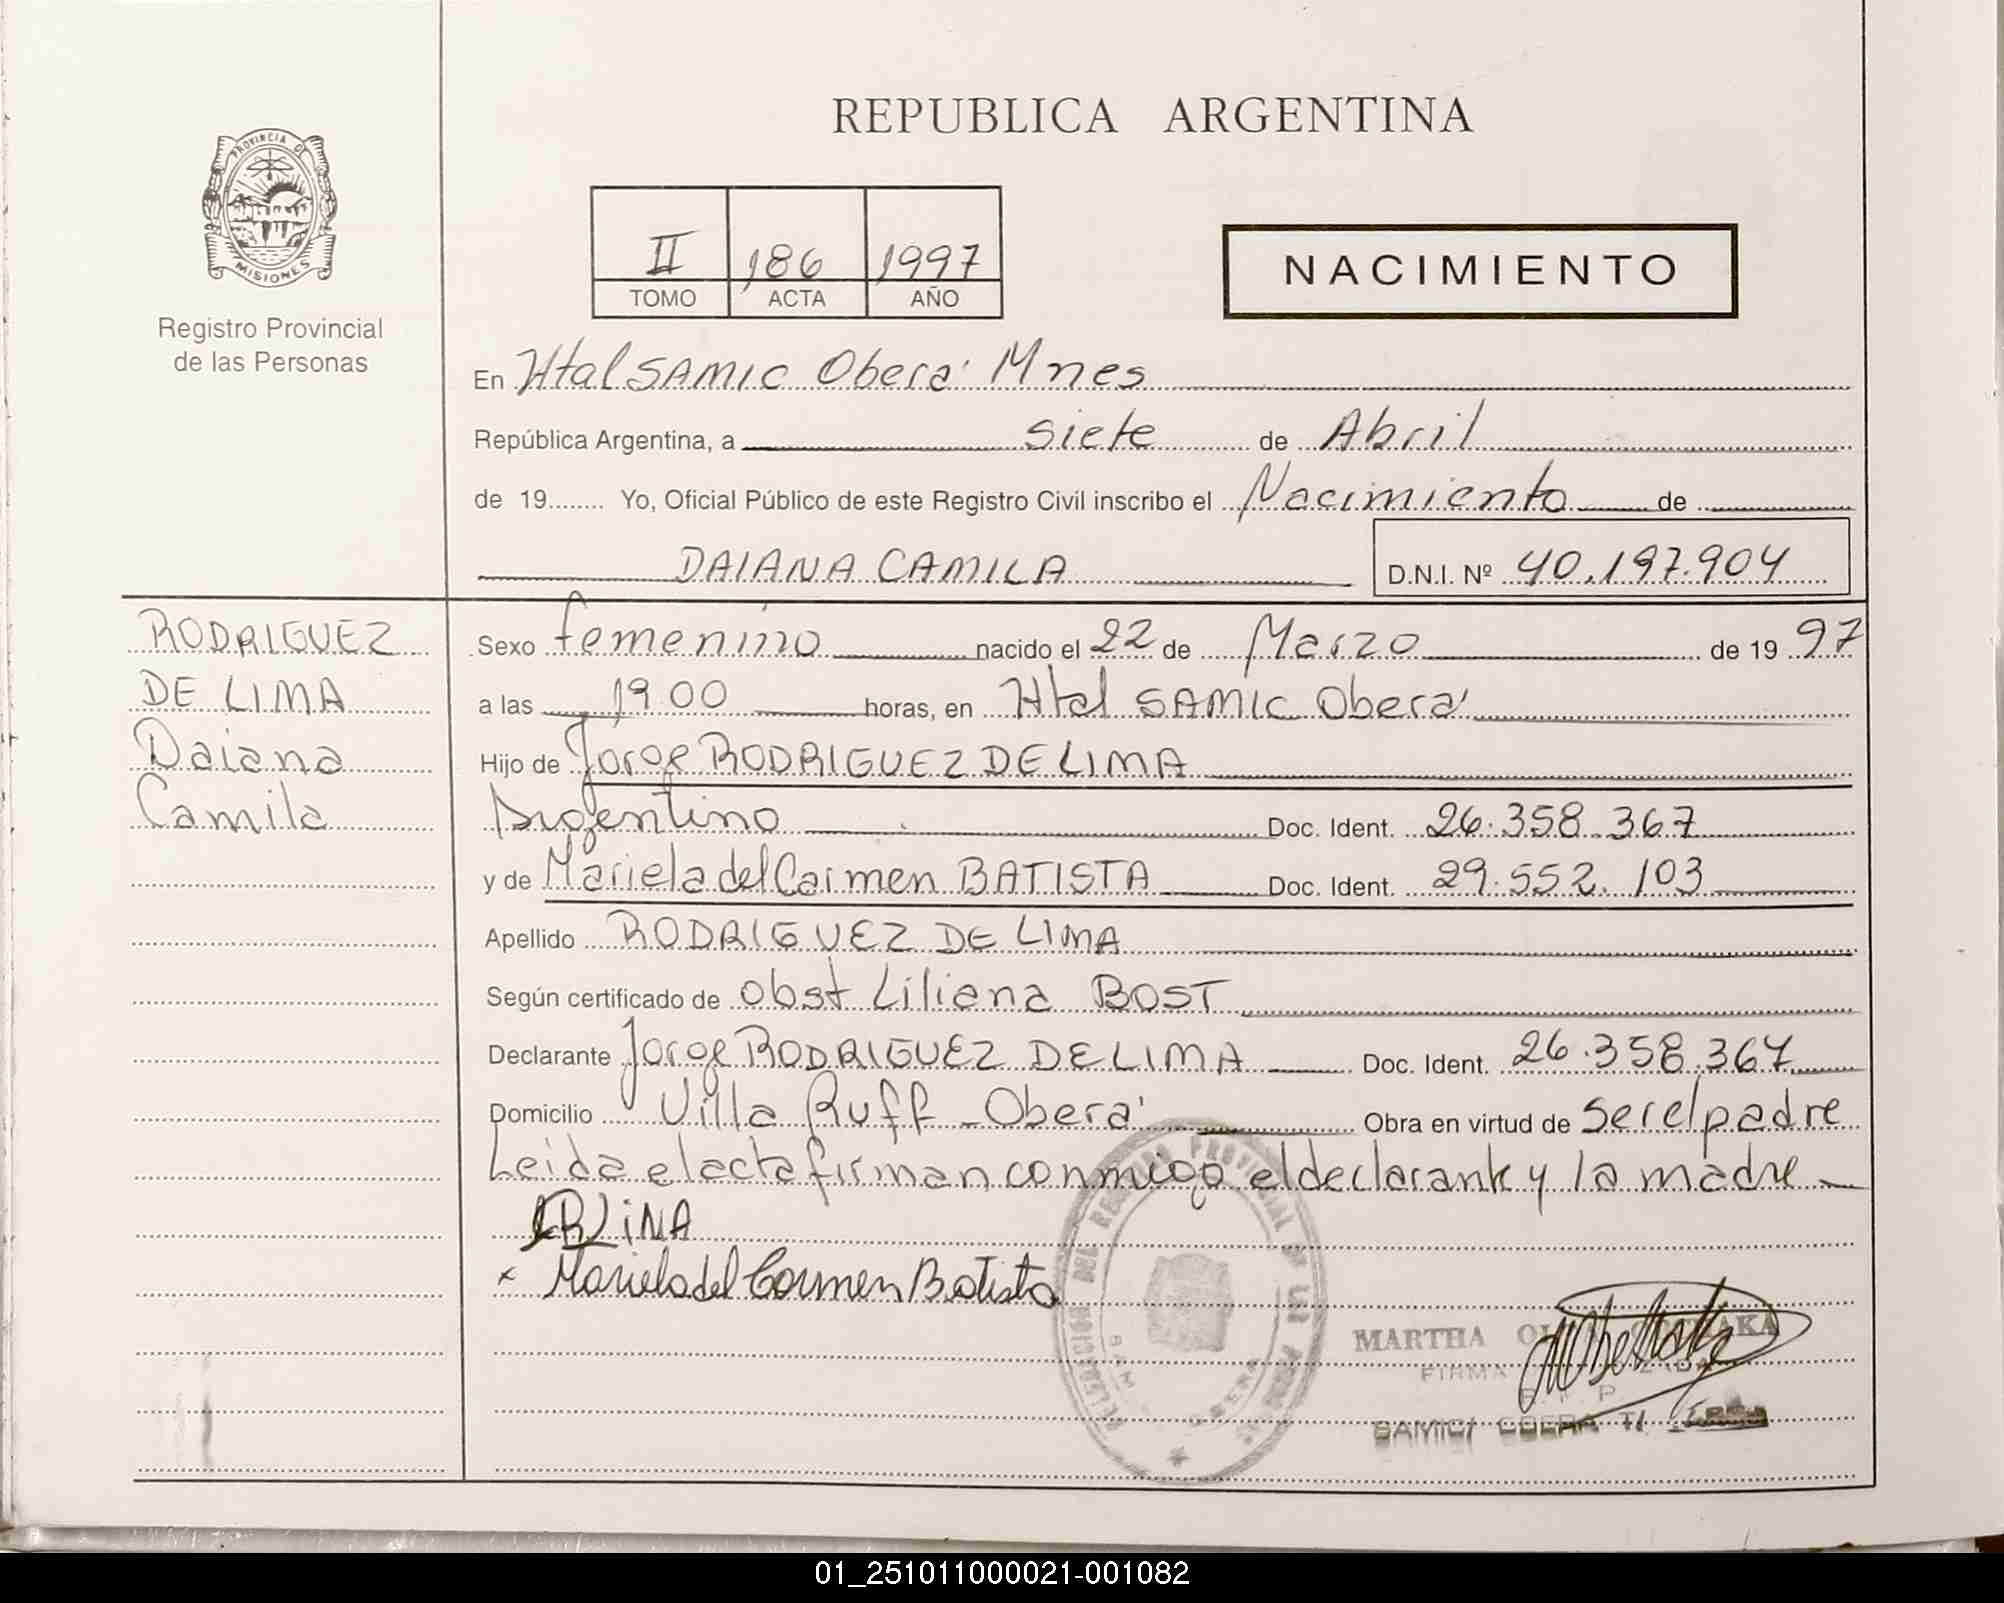 REPUBLICA ARGENTINA
PROVINCIA DE
MISIONES
Registro Provincial
de las Personas
II 186 1997
TOMO ACTA AÑO
NACIMIENTO
En Htal SAMIC Oberá Mnes
República Argentina, a siete de Abril
de 19........ Yo, Oficial Público de este Registro Civil inscribo el Nacimiento de
DAIANA CAMILA D.N.I. Nº 40.197.904
RODRIGUEZ
DE LIMA
Daiana
Camila
Sexo femenino nacido el 22 de Marzo de 19 97
a las 19 00 horas, en Htal SAMIC Oberá
Hijo de Jorge RODRIGUEZ DE LIMA
Argentino Doc. Ident. 26.358.367
y de Mariela del Carmen BATISTA Doc. Ident. 29.552.103
Apellido RODRIGUEZ DE LIMA
Según certificado de obst Liliana BOST
Declarante Jorge RODRIGUEZ DE LIMA Doc. Ident. 26.358.367
Domicilio Villa Ruff - Oberá Obra en virtud de ser el padre
Leida el acta firman conmigo el declarante y la madre
Mariela del Carmen Batista
DEL REGISTRO PROVINCIAL DE LAS
OBERA
MARTHA
FIRMA
SAMIC/ OBERA
01_251011000021-001082